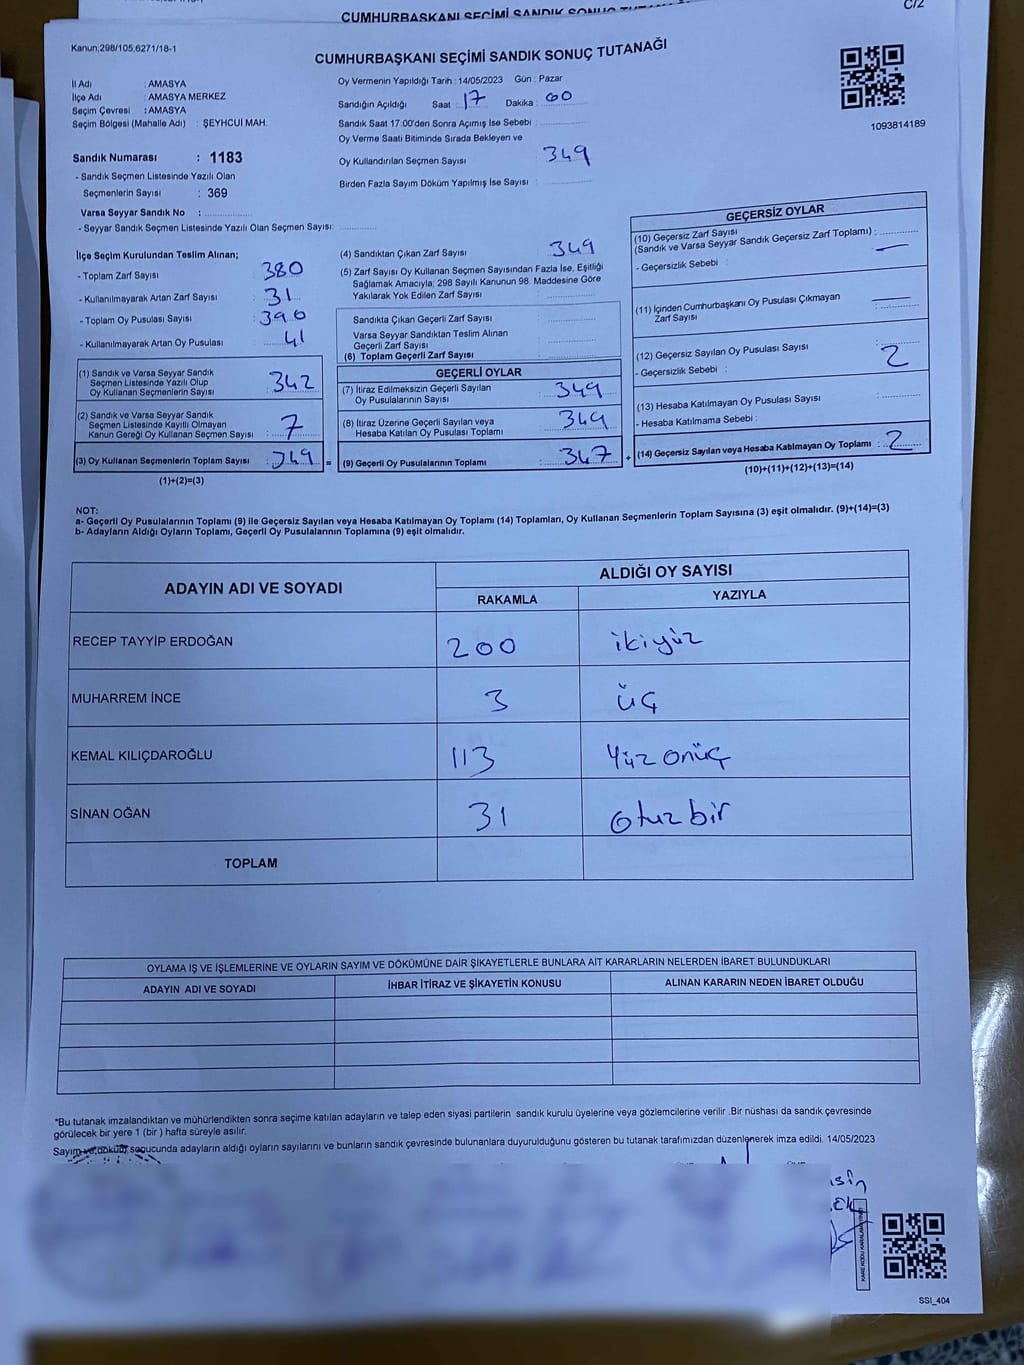 CUMHURBAŞKANI SEÇİMİ SANDIK SONUÇ
C/2
Kanun;298/105,6271/18-1
CUMHURBAŞKANI SEÇİMİ SANDIK SONUÇ TUTANAĞI
1093814189
İl Adı : AMASYA
İlçe Adı : AMASYA MERKEZ
Seçim Çevresi : AMASYA
Seçim Bölgesi (Mahalle Adı) : ŞEYHCUİ MAH.
Oy Vermenin Yapıldığı Tarih : 14/05/2023 Gün : Pazar
Sandığın Açıldığı Saat : 17 Dakika : 00
Sandık Saat 17:00'den Sonra Açımış İse Sebebi :
Oy Verme Saati Bitiminde Sırada Bekleyen ve
Oy Kullandırılan Seçmen Sayısı : 349
Birden Fazla Sayım Döküm Yapılmış İse Sayısı :
Sandık Numarası : 1183
- Sandık Seçmen Listesinde Yazılı Olan
Seçmenlerin Sayısı : 369
Varsa Seyyar Sandık No :
- Seyyar Sandık Seçmen Listesinde Yazılı Olan Seçmen Sayısı:
İlçe Seçim Kurulundan Teslim Alınan;
- Toplam Zarf Sayısı : 380
- Kullanılmayarak Artan Zarf Sayısı : 31
- Toplam Oy Pusulası Sayısı : 390
- Kullanılmayarak Artan Oy Pusulası : 41
(1) Sandık ve Varsa Seyyar Sandık
Seçmen Listesinde Yazılı Olup
Oy Kullanan Seçmenlerin Sayısı : 342
(2) Sandık ve Varsa Seyyar Sandık
Seçmen Listesinde Kayıtlı Olmayan
Kanun Gereği Oy Kullanan Seçmen Sayısı : 7
(3) Oy Kullanan Seçmenlerin Toplam Sayısı : 349 =
(1)+(2)=(3)
(4) Sandıktan Çıkan Zarf Sayısı : 349
(5) Zarf Sayısı Oy Kullanan Seçmen Sayısından Fazla İse, Eşitliği
Sağlamak Amacıyla; 298 Sayılı Kanunun 98. Maddesine Göre
Yakılarak Yok Edilen Zarf Sayısı :
Sandıkta Çıkan Geçerli Zarf Sayısı :
Varsa Seyyar Sandıktan Teslim Alınan
Geçerli Zarf Sayısı :
(6) Toplam Geçerli Zarf Sayısı :
GEÇERLİ OYLAR
(7) İtiraz Edilmeksizin Geçerli Sayılan
Oy Pusulalarının Sayısı : 349
(8) İtiraz Üzerine Geçerli Sayılan veya
Hesaba Katılan Oy Pusulası Toplamı : 349
(9) Geçerli Oy Pusulalarının Toplamı : 347 +
GEÇERSİZ OYLAR
(10) Geçersiz Zarf Sayısı
(Sandık ve Varsa Seyyar Sandık Geçersiz Zarf Toplamı) : —
- Geçersizlik Sebebi :
(11) İçinden Cumhurbaşkanı Oy Pusulası Çıkmayan
Zarf Sayısı : —
(12) Geçersiz Sayılan Oy Pusulası Sayısı : 2
- Geçersizlik Sebebi :
(13) Hesaba Katılmayan Oy Pusulası Sayısı :
- Hesaba Katılmama Sebebi :
(14) Geçersiz Sayılan veya Hesaba Katılmayan Oy Toplamı : 2
(10)+(11)+(12)+(13)=(14)
NOT:
a- Geçerli Oy Pusulalarının Toplamı (9) ile Geçersiz Sayılan veya Hesaba Katılmayan Oy Toplamı (14) Toplamları, Oy Kullanan Seçmenlerin Toplam Sayısına (3) eşit olmalıdır. (9)+(14)=(3)
b- Adayların Aldığı Oyların Toplamı, Geçerli Oy Pusulalarının Toplamına (9) eşit olmalıdır.
ADAYIN ADI VE SOYADI
ALDIĞI OY SAYISI
RAKAMLA YAZIYLA
RECEP TAYYİP ERDOĞAN 200 ikiyüz
MUHARREM İNCE 3 üç
KEMAL KILIÇDAROĞLU 113 Yüz onüç
SİNAN OĞAN 31 otuz bir
TOPLAM
OYLAMA İŞ VE İŞLEMLERİNE VE OYLARIN SAYIM VE DÖKÜMÜNE DAİR ŞİKAYETLERLE BUNLARA AİT KARARLARIN NELERDEN İBARET BULUNDUKLARI
ADAYIN ADI VE SOYADI İHBAR İTİRAZ VE ŞİKAYETİN KONUSU ALINAN KARARIN NEDEN İBARET OLDUĞU
*Bu tutanak imzalandıktan ve mühürlendikten sonra seçime katılan adayların ve talep eden siyasi partilerin sandık kurulu üyelerine veya gözlemcilerine verilir .Bir nüshası da sandık çevresinde
görülecek bir yere 1 (bir ) hafta süreyle asılır.
Sayım ve döküm sonucunda adayların aldığı oyların sayılarını ve bunların sandık çevresinde bulunanlara duyurulduğunu gösteren bu tutanak tarafımızdan düzenlenerek imza edildi. 14/05/2023
KARE KODU KARALAMAYINIZ!
SSI_404